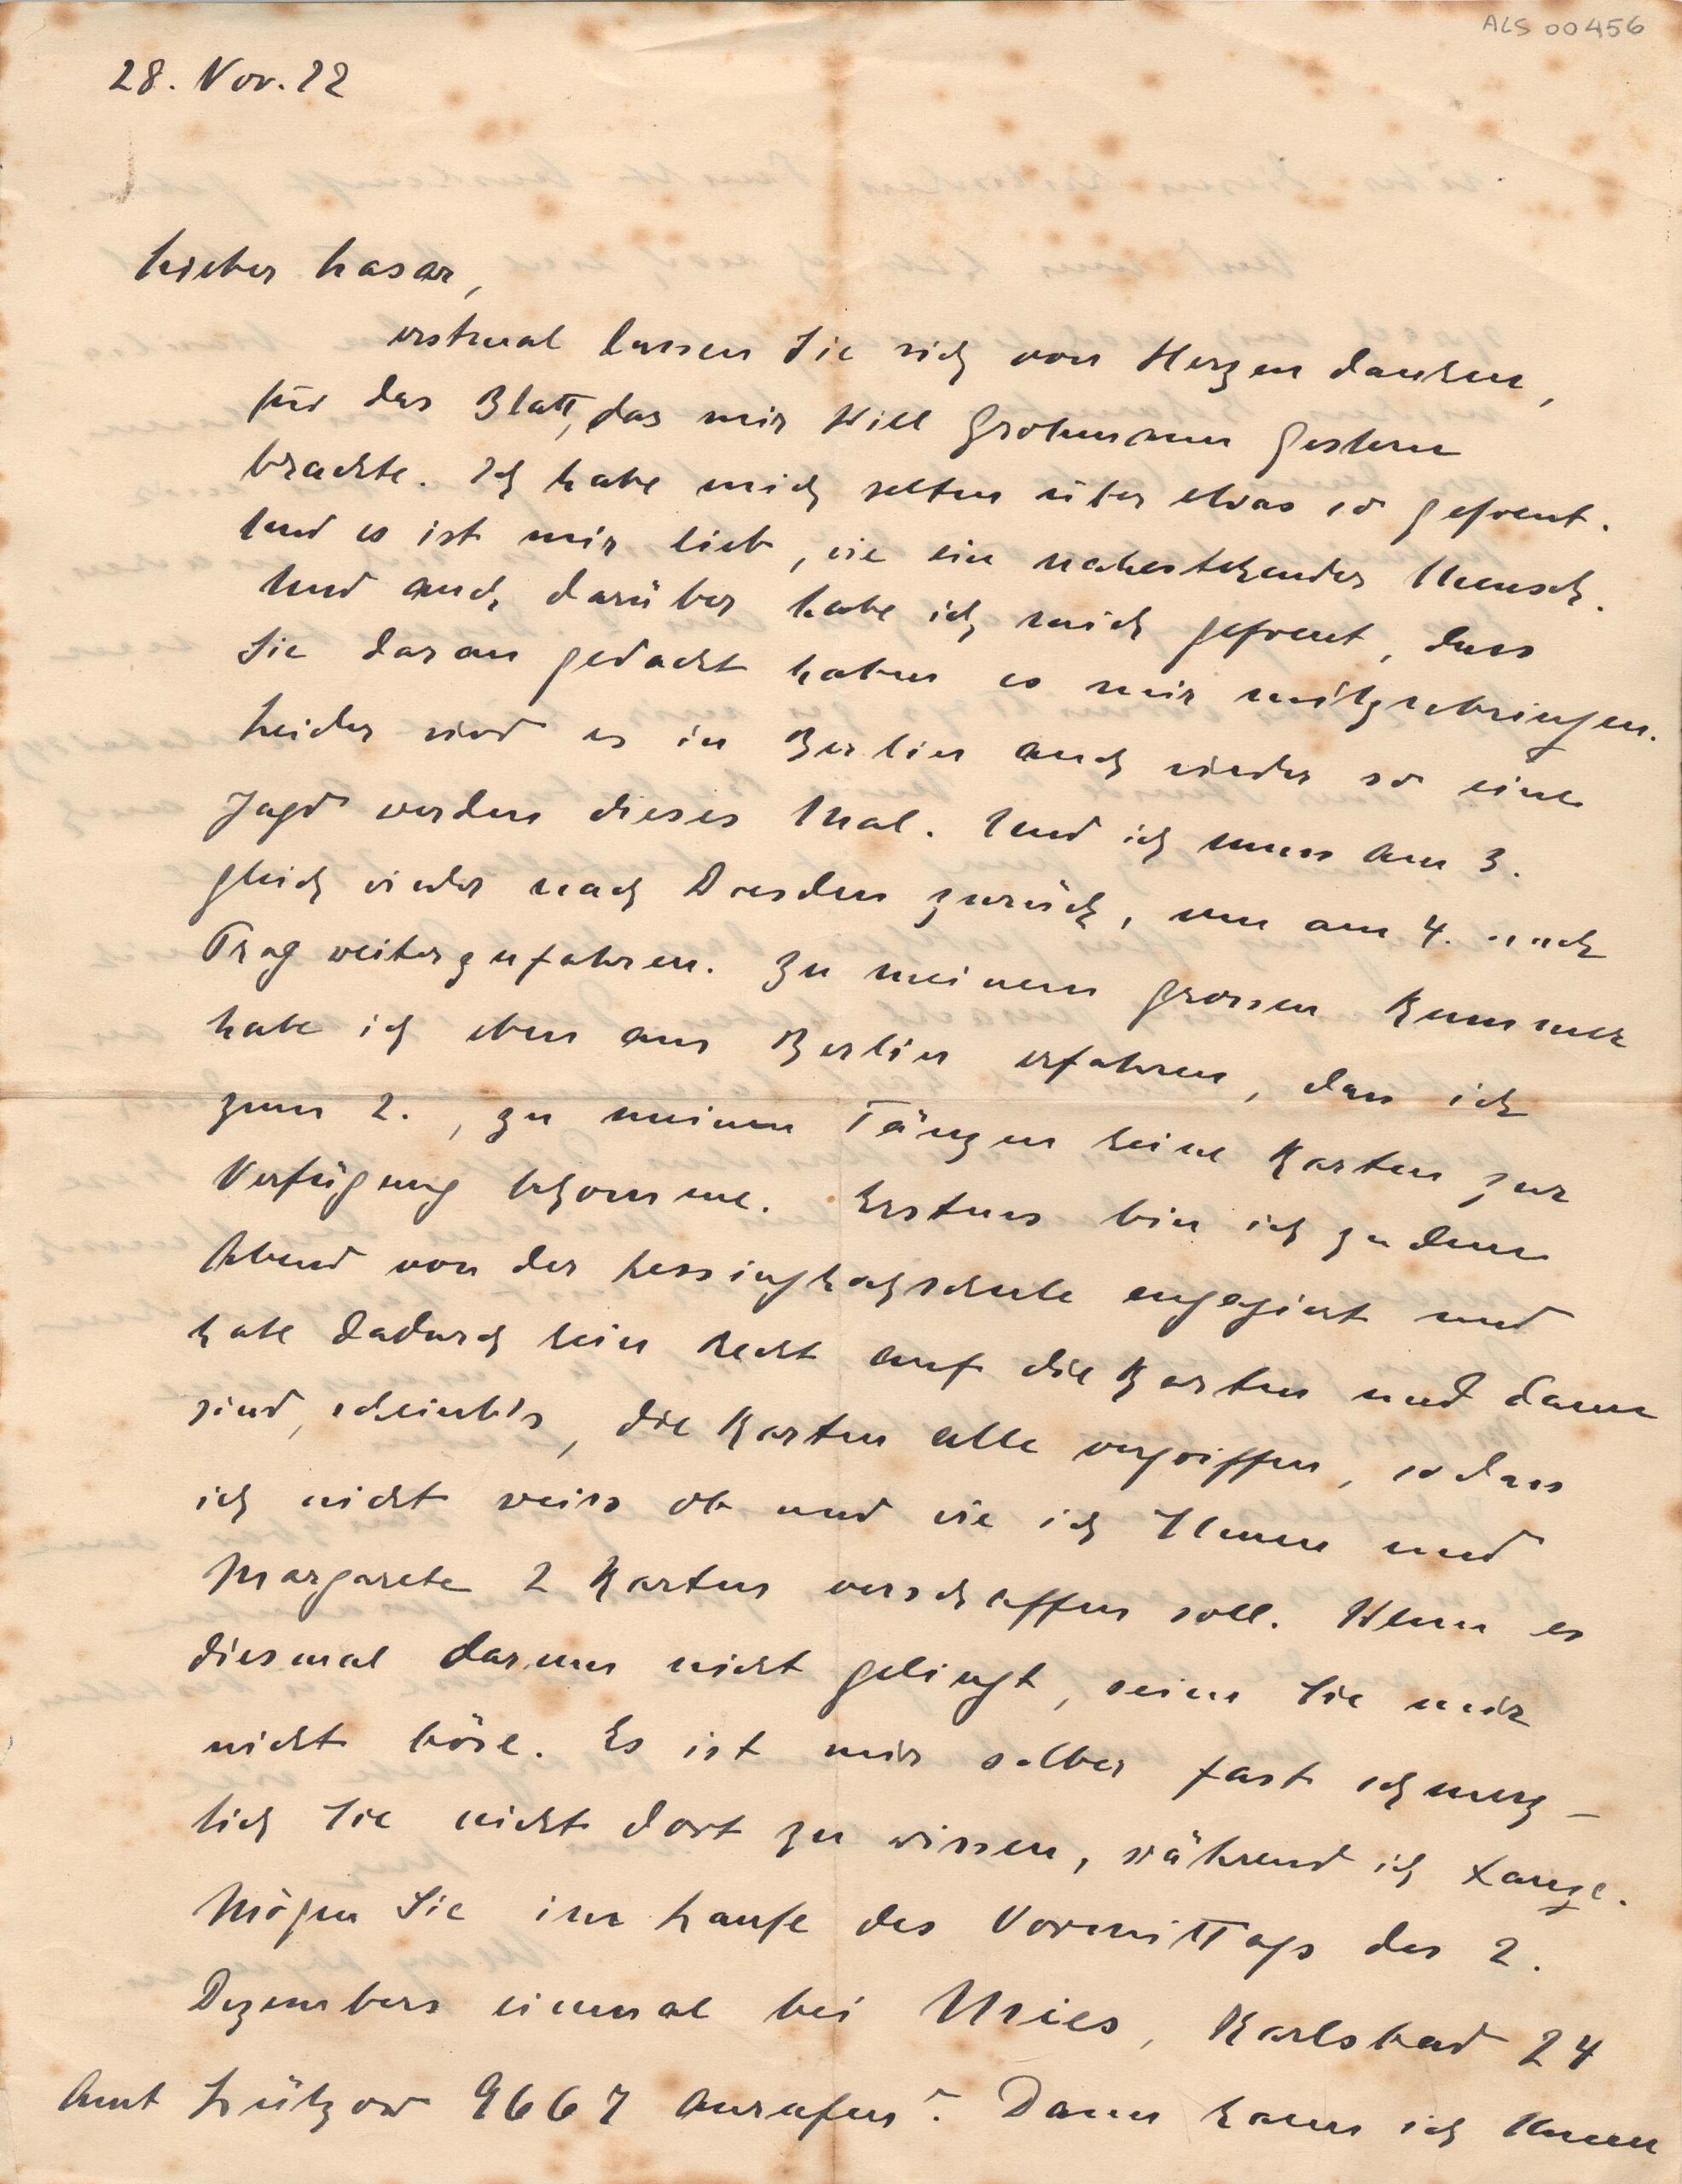 ALS 00456
28. Nov. 22
Lieber Lasar,
erstmal lassen Sie sich von Herzen danken,
für das Blatt, das mir Will Grohmann gestern
brachte. Ich habe mich selten über etwas so gefreut.
Und es ist mir lieb, wie ein nahestehender Mensch.
Und auch darüber habe ich mich gefreut, dass
Sie daran gedacht haben es mir mitzubringen.
Leider wird es in Berlin auch wieder so eine
Jagd werden dieses Mal. Und ich muss am 3.
gleich wieder nach Dresden zurück, um am 4. nach
Prag weiterzufahren. Zu meinem grossen Kummer
habe ich eben aus Berlin erfahren, dass ich
zum 2., zu meinen Tänzen keine Karten zur
Verfügung bekomme. Erstens bin ich zu dem
Abend von der Lessinghochschule engagiert und
habe dadurch kein Recht auf die Karten und dann
sind, scheint's, die Karten alle vergriffen, sodass
ich nicht weiss ob und wie ich Ihnen und
Margarete 2 Karten verschaffen soll. Wenn es
diesmal darum nicht gelingt, seien Sie mir
nicht böse. Es ist mir selber fast schmerz-
lich Sie nicht dort zu wissen, während ich tanze.
Mögen Sie im Laufe des Vormittags des 2.
Dezembers einmal bei Mies, Karlsbad 24
Amt Lützow 9667 anrufen? Dann kann ich Ihnen